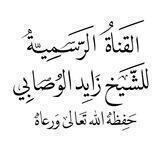 القَنَاةُ الرَّسْمِيَّةُ
للشَّيْخِ زَايِد الوُصَابِي
حَفِظَهُ الله تَعَالَى وَرَعَاهُ